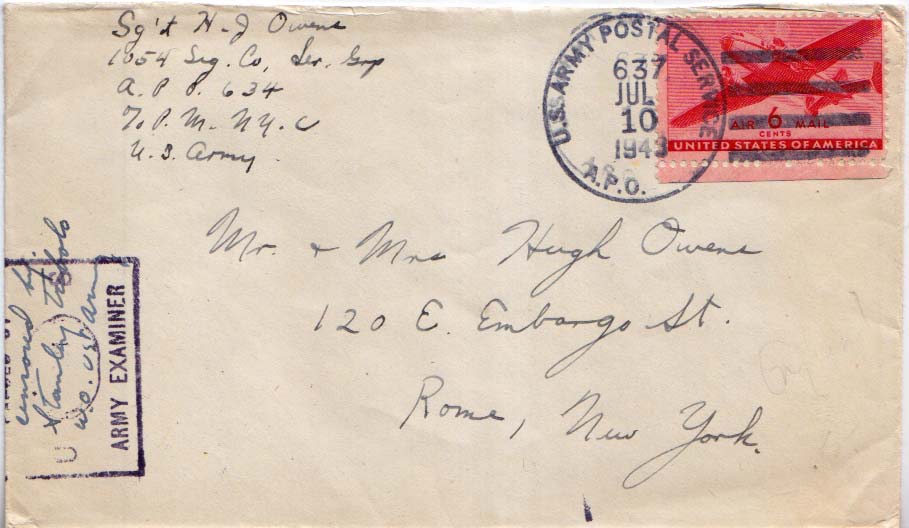 Sg't H-J Owens
1054 Sig. Co, Ser. Grp
A.P.O. 634
% P.M. N.Y.C
U.S. Army
U.S. ARMY POSTAL SERVICE
637
JUL
10
1943
A.P.O.
AIR 6 MAIL
CENTS
UNITED STATES OF AMERICA
Mr. + Mrs Hugh Owens
120 E. Embargo St.
Rome, New York.
censored by.
Stanley
W.O. US Army
ARMY EXAMINER